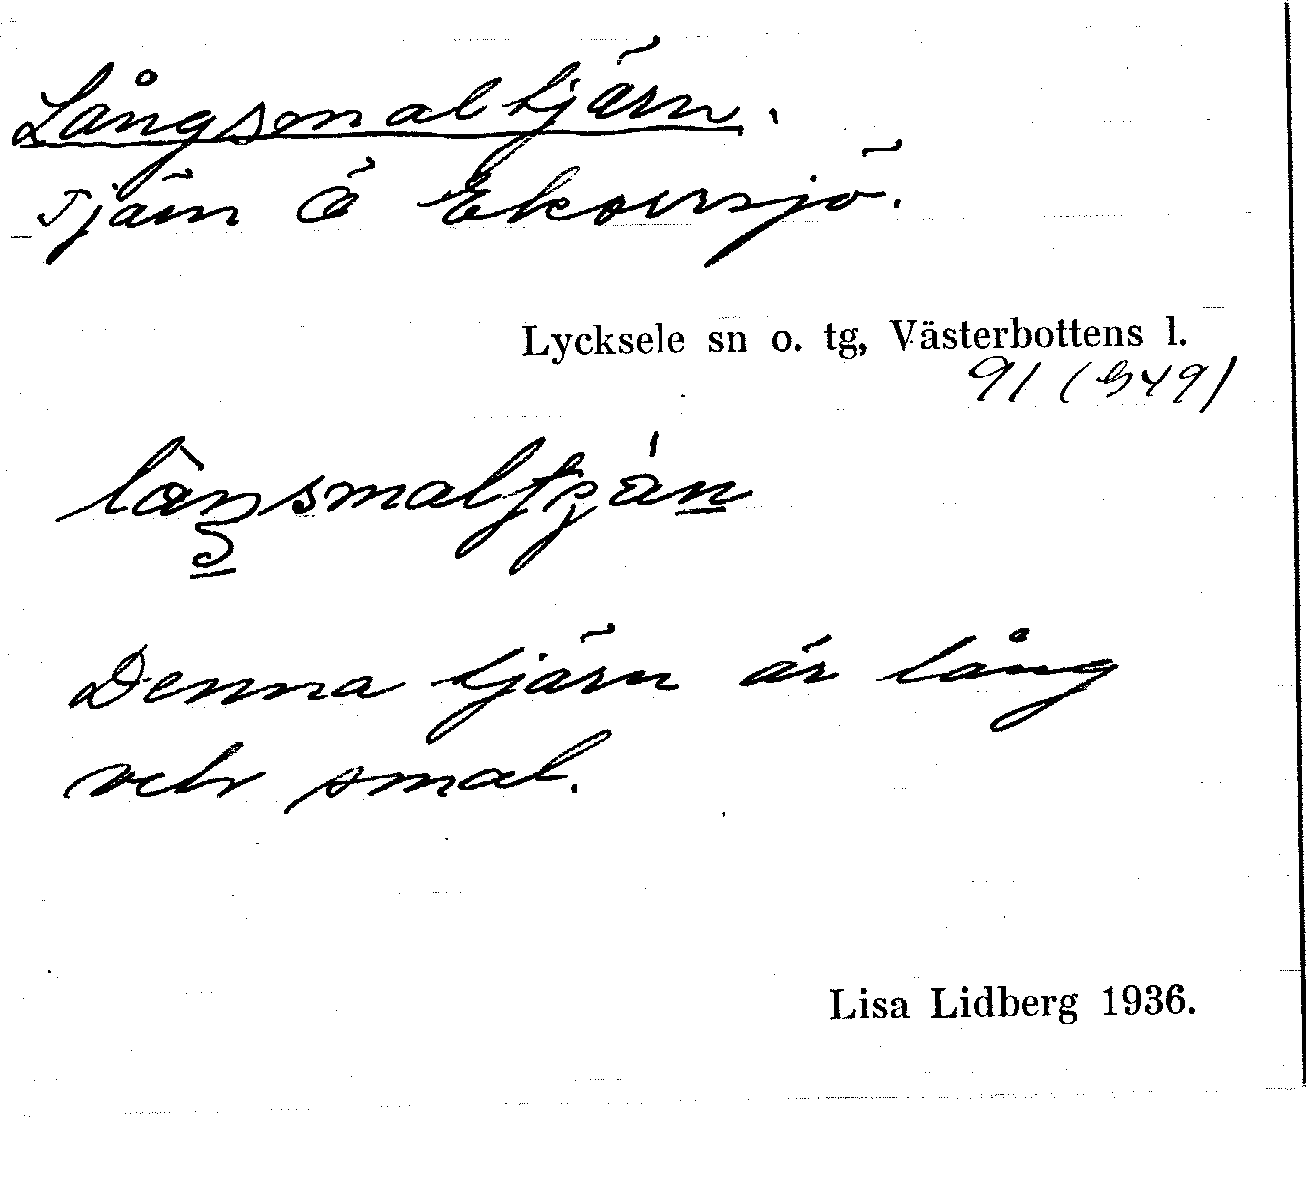 Långsmaltjärn.
Tjärn Ö Ekorrsjö.
Lycksele sn o. tg, Västerbottens l.
91 (949)
Denna tjärn är lång
och smal.
Lisa Lidberg 1936.